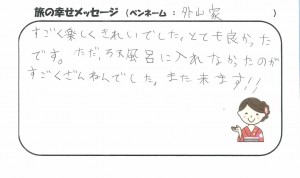 旅の幸せメッセージ（ペンネーム：外山家）
すごく楽しくきれいでした。とても良かった
です。ただ、大風呂に入れなかったのが
すごくざんねんでした。また来ます!!